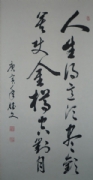 人生得意須盡歡
莫使金樽空對月
庚寅